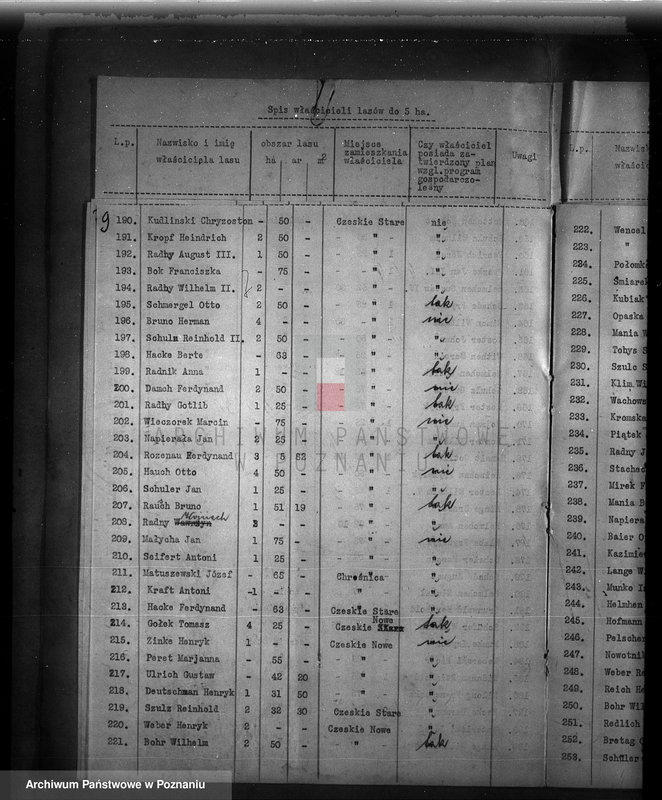 Spis właścicieli lasów do 5 ha.
L.p. Nazwisko i imię właściciela lasu obszar lasu ha ar m2 Miejsce zamieszkania właściciela Czy właściciel posiada zatwierdzony plan wzgl.program gospodarczo-leśny Uwagi
190. Kudlinski Chryzoston - 50 - Czeskie Stare nie
191. Kropf Heindrich 2 50 - " "
192. Radhy August III. 1 50 - " "
193. Bok Franciszka - 75 - " "
194. Radhy Wilhelm II. 2 - - " "
195. Schmergel Otto 2 50 - " tak
196. Bruno Herman 4 - - " nie
197. Schulz Reinhold II. 2 50 - " "
198. Hacke Berte - 63 - " "
199. Radnik Anna 1 - - " tak
200. Damch Ferdynand 2 50 - " nie
201. Radhy Gotlib 1 25 - " tak
202. Wieczorek Marcin - 75 - " nie
203. Napierała Jan 2 25 - " "
204. Rozenau Ferdynand 3 5 82 " tak
205. Hauch Otto 4 50 - " nie
206. Schuler Jan 1 25 - " "
207. Rauch Bruno 1 51 19 " tak
208. Radny - - " "
209. Małycha Jan 1 75 - " nie
210. Seifert Antoni 1 25 - " "
211. Matuszewski Józef - 65 - Chrośnica "
212. Kraft Antoni -1 - - " "
213. Hacke Ferdynand - 63 - Czeskie Stare "
214. Gołek Tomasz 4 25 - Czeskie Nowe tak
215. Zinke Henryk 1 - - Czeskie Nowe nie
216. Peret Marjanna - 55 - " "
217. Ulrich Gustaw - 42 20 " "
218. Deutschman Henryk 1 31 50 " "
219. Szulz Reinhold 2 32 30 Czeskie Stare "
220. Weber Henryk 2 - - Czeskie Nowe "
221. Bohr Wilhelm 2 50 - " tak
L.p. Nazwisk
właścic
222. Wencel
223. "
224. Połomk
225. Śmiarek
226. Kubiak
227. Opaska
228. Mania W
229. Tohys S
230. Szulc S
231. Klim Wi
232. Wachows
233. Kromska
234. Piątek
235. Radny J
236. Stachec
237. Mirek F
238. Mania B
239. Napiera
240. Baier O
241. Kazimie
242. Lange W
243. Munke I
244. Helmhen
245. Hofmann
246. Pelscher
247. Nowotnik
248. Weber Re
249. Reich He
250. Bohr Wil
251. Redlich
252. Bretag G
253. Schüler
ARCHIWUM PAŃSTWOWE
W POZNANIU
Archiwum Państwowe w Poznaniu